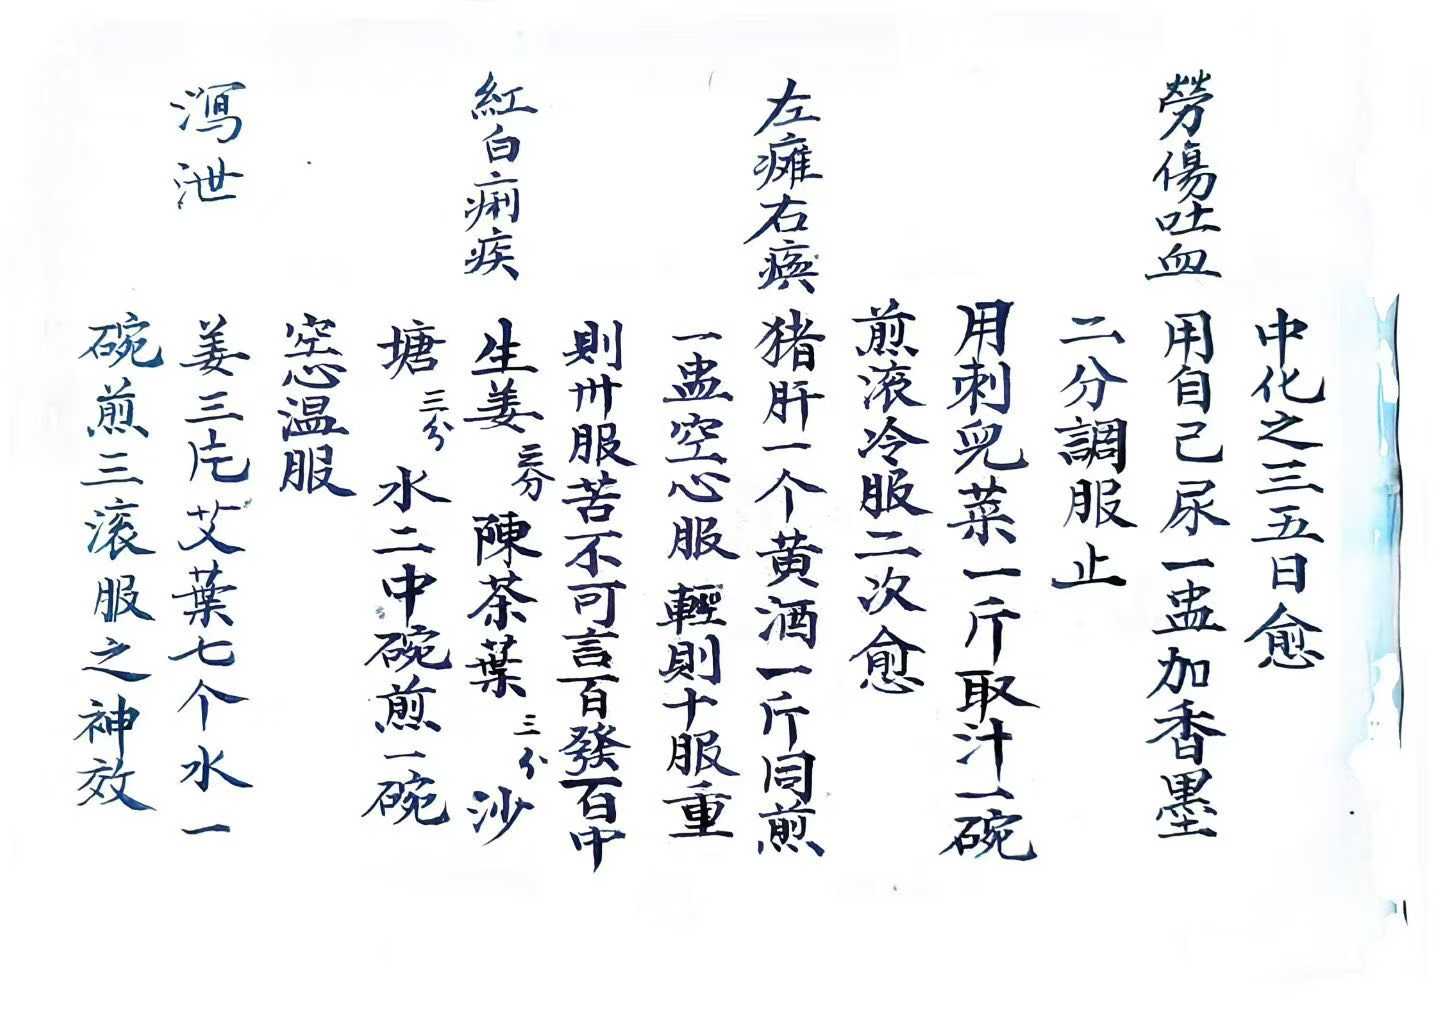 中化之三五日愈
勞傷吐血 用自己尿一盅加香墨
二分調服止
用刺兒菜一斤取汁一碗
煎液冷服二次愈
左癱右瘓 猪肝一个黄酒一斤同煎
一盅空心服 輕則十服重
則卅服苦不可言百發百中
紅白痢疾 生姜三分 陳茶葉三分 沙
塘三分 水二中碗煎一碗
空心温服
瀉泄 姜三片艾葉七个水一
碗煎三滚服之神效